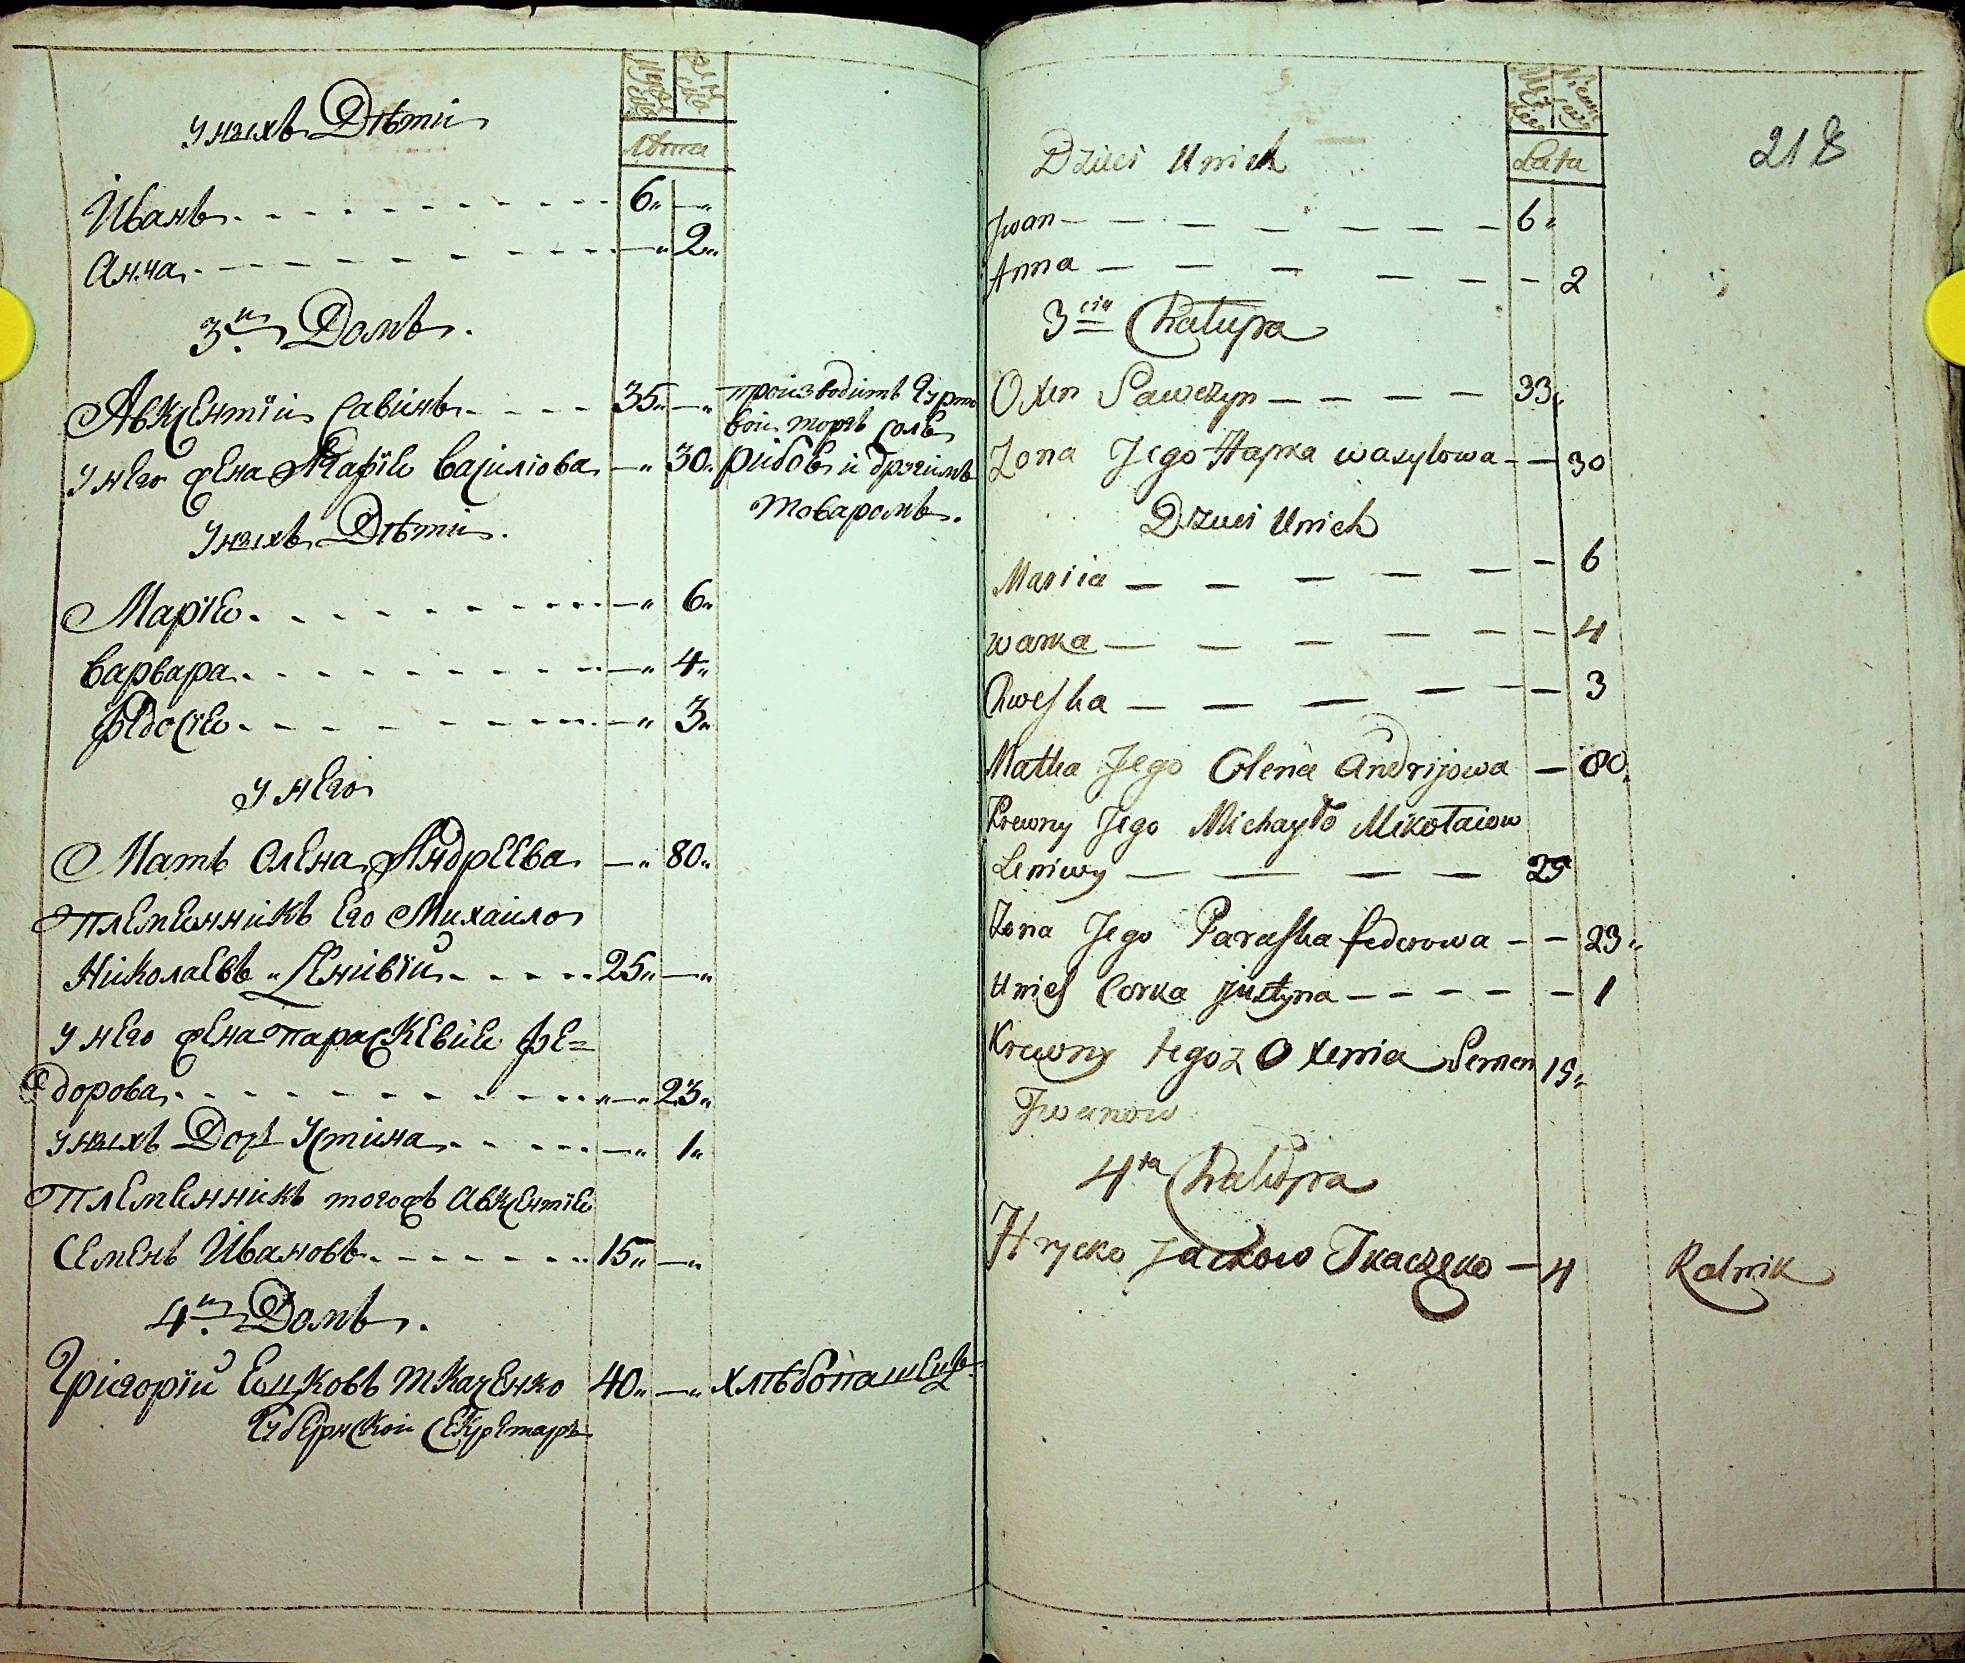 Мужеска Женска
Лѣта
У нихъ Дѣти
Иванъ 6
Анна 2
3й Домъ.
Авксентій Савинъ 35 производитъ Гурто
вой торгъ солю
У него жена Агафія Василіова 30 рибою и другимъ
товаромъ.
У нихъ Дѣти.
Марія 6
Варвара 4
Федосія 3
У него
Мать Олена Андреева 80
Племенникъ его Михайло
Николаевъ Ленивій 25
У него жена Параскевия Фе=
дорова 23
У нихъ Дочь Устина 1
Племенникъ тогожъ Авксентія
Семенъ Ивановъ 15
4й Домъ.
Григорій Ецковъ Ткаченко 40 хлѣбопашецъ
Губернской Секретарь
218
Lata
Dzieci U nich
Jwan 6
Anna 2
3cia Chałupa
Oxen Sawczyn 33
Zona Jego Hapka wasylowa 30
Dzieci U nich
Mariia 6
warka 4
Chweska 3
Matka Jego Olena Andrijowa 80
Krewny Jego Michayło Mikołaiow
Leniwy 25
Zona Jego Paraska federowa 23
U nich Corka justyna 1
Krewny tegoz Oxenia Semen 15
Jwanow
4ta Chałupa
Hrycko Jackow Tkaczęko 4 Rolnik